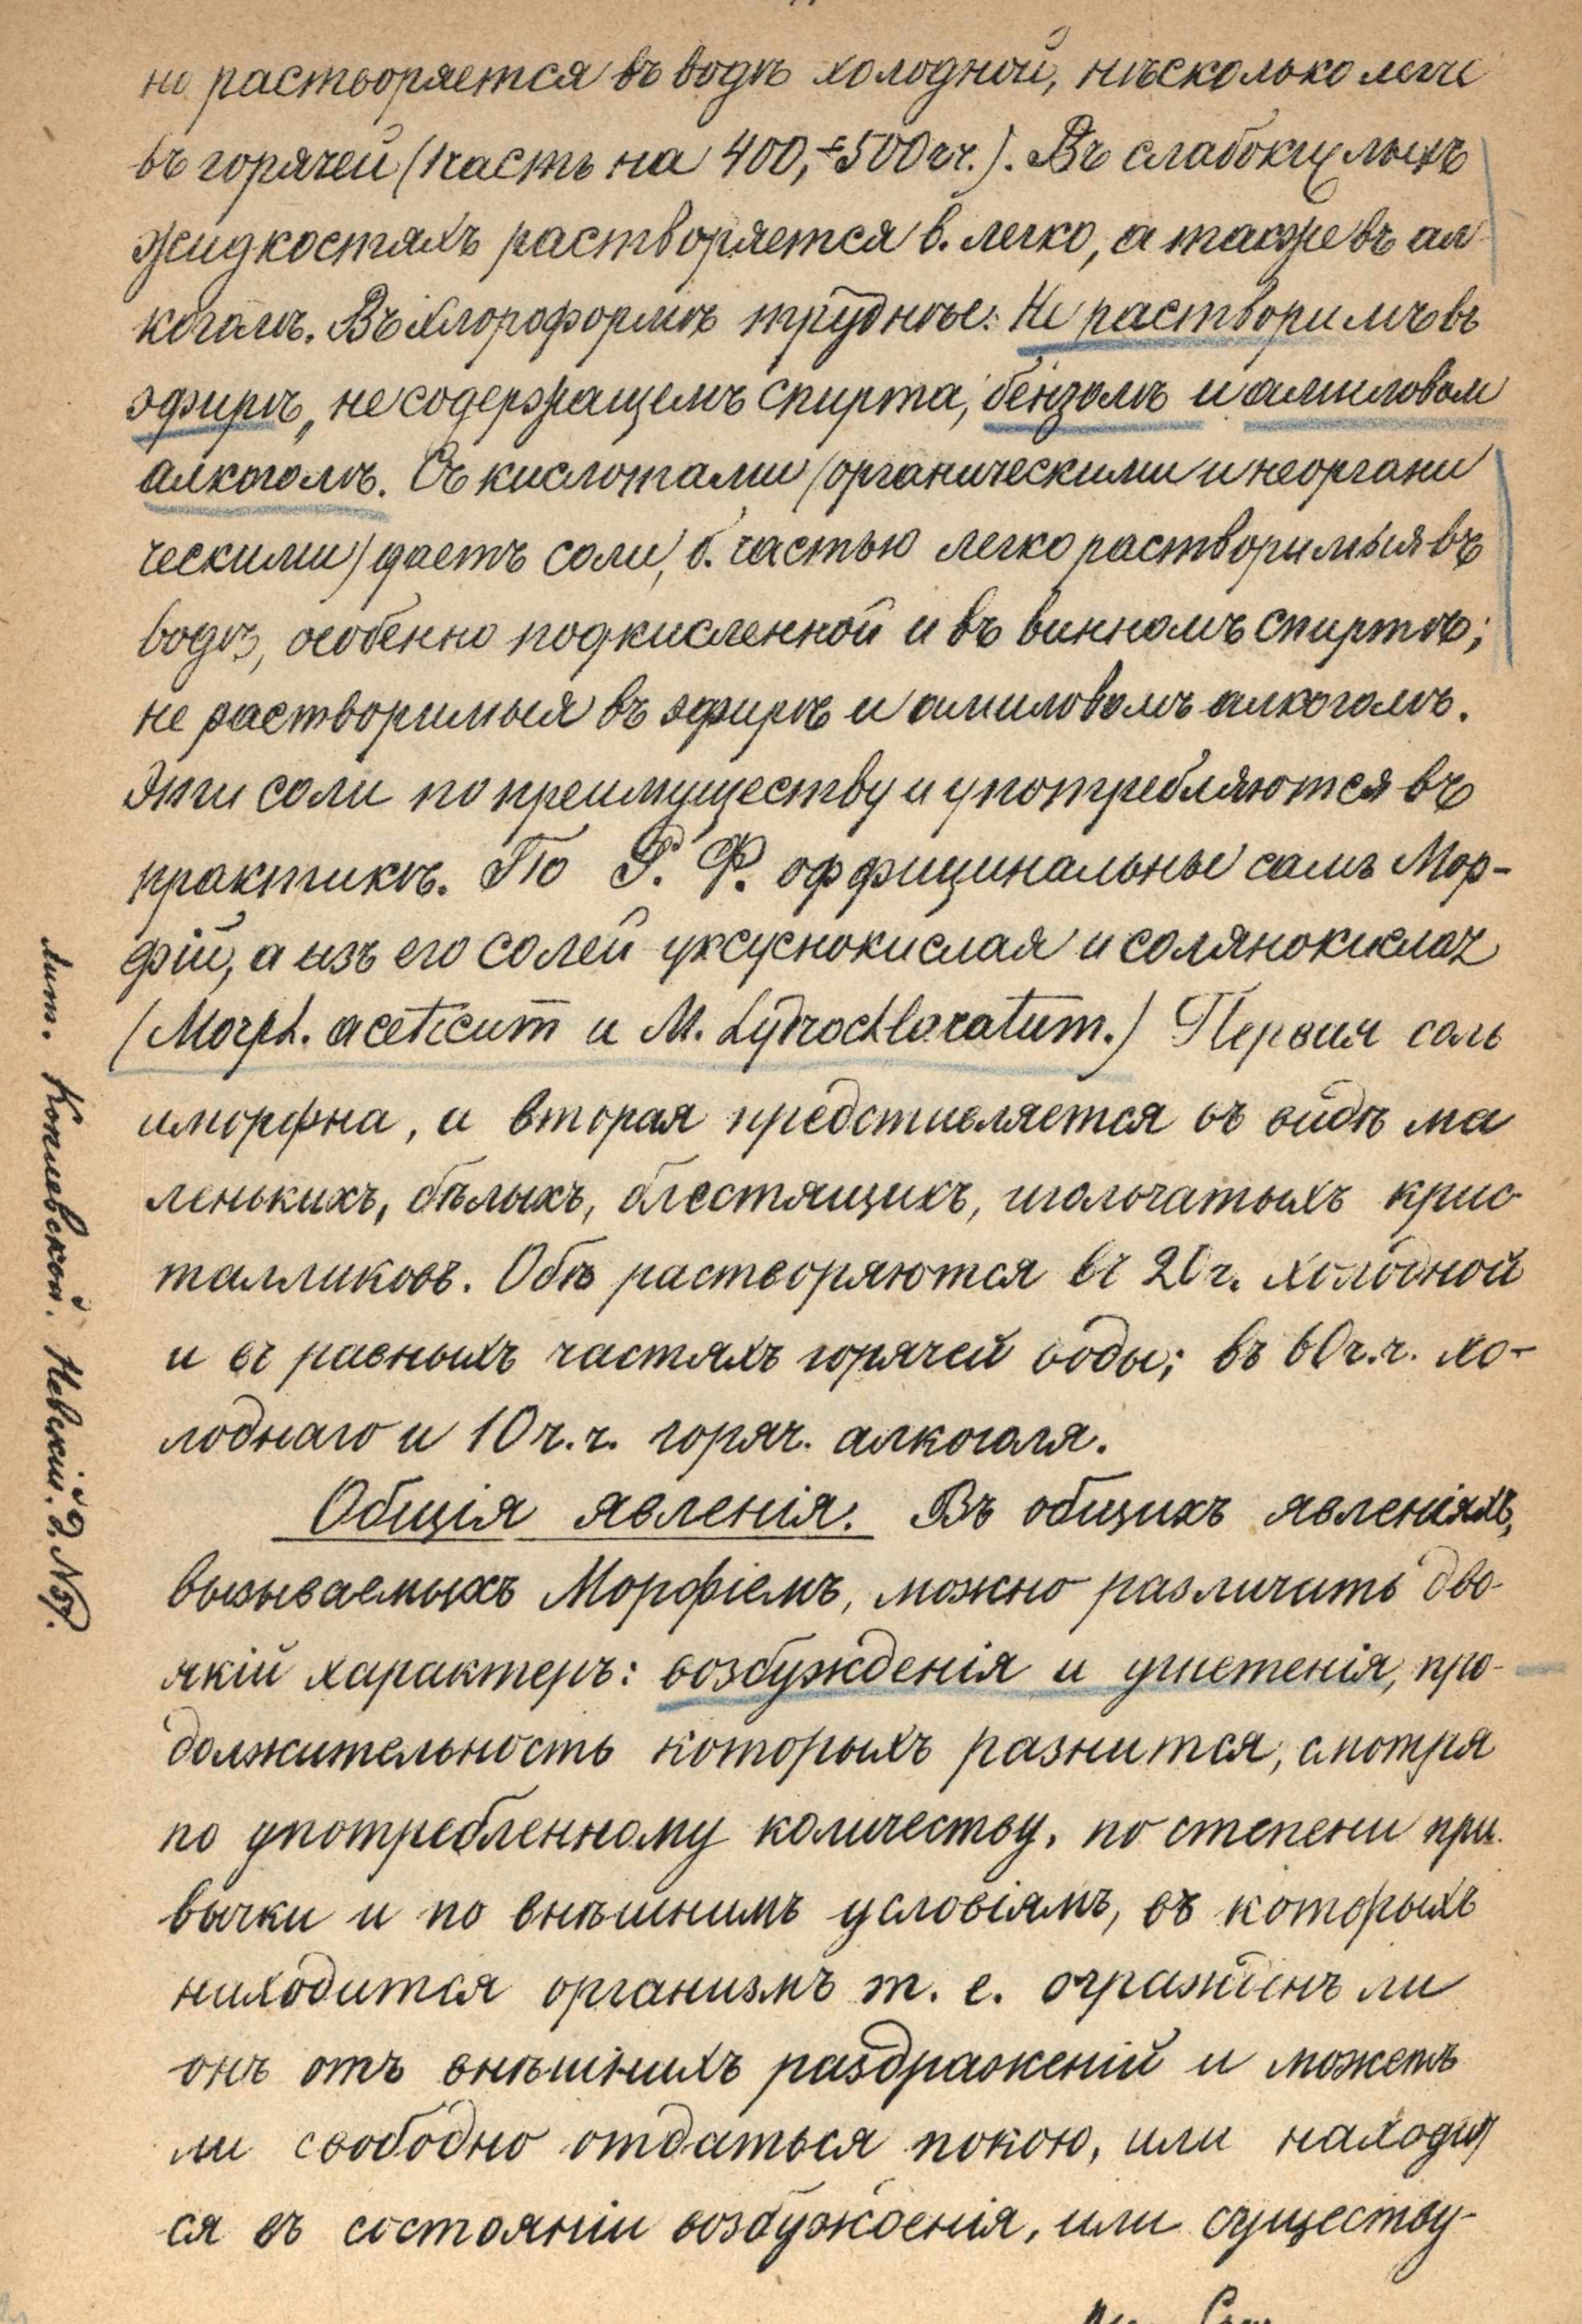 но растворяется въ водѣ холодной, нѣсколько легче
въ горячей (1 часть на 400,-500 ч.). Въ слабокислыхъ
жидкостяхъ растворяется в. легко, а также въ ал
коголѣ. Въ хлороформѣ труднѣе. Не растворимъ въ
эфирѣ, не содержащемъ спирта, бензолѣ и амиловом
алкоголѣ. Съ кислотами (органическими и неоргани
ческими) даетъ соли, б. частью легко растворимыя въ
водѣ, особенно подкисленной и въ винномъ спиртѣ;
не растворимыя въ эфирѣ и амиловомъ алкоголѣ.
Эти соли по преимуществу и употребляются въ
практикѣ. По Р. Ф. оффицинальны самъ Мор-
фій, а изъ его солей уксуснокислая и солянокислая
(Morph. aceticum и M. hydrochloratum.) Первая соль
аморфна, а вторая представляется въ видѣ ма
ленькихъ, бѣлыхъ, блестящихъ, игольчатыхъ крис
талликовъ. Обѣ растворяются въ 20 ч. холодной
и въ равныхъ частяхъ горячей воды; въ 60 ч.ч. хо-
лоднаго и 10 ч.ч. горяч. алкоголя.
Общія явленія. Въ общихъ явленіяхъ,
вызываемыхъ Морфіемъ, можно различить дво-
якій характеръ: возбужденія и угнетенія, про-
должительность которыхъ разнится, смотря
по употребленному количеству, по степени при.
вычки и по внѣшнимъ условіямъ, въ которыхъ
находится организмъ т. е. огражденъ ли
онъ отъ внѣшнихъ раздраженій и можетъ
ли свободно отдаться покою, или находит
ся въ состояніи возбужденія, или существу-
Лит. Коплевской. Невскій. д. №